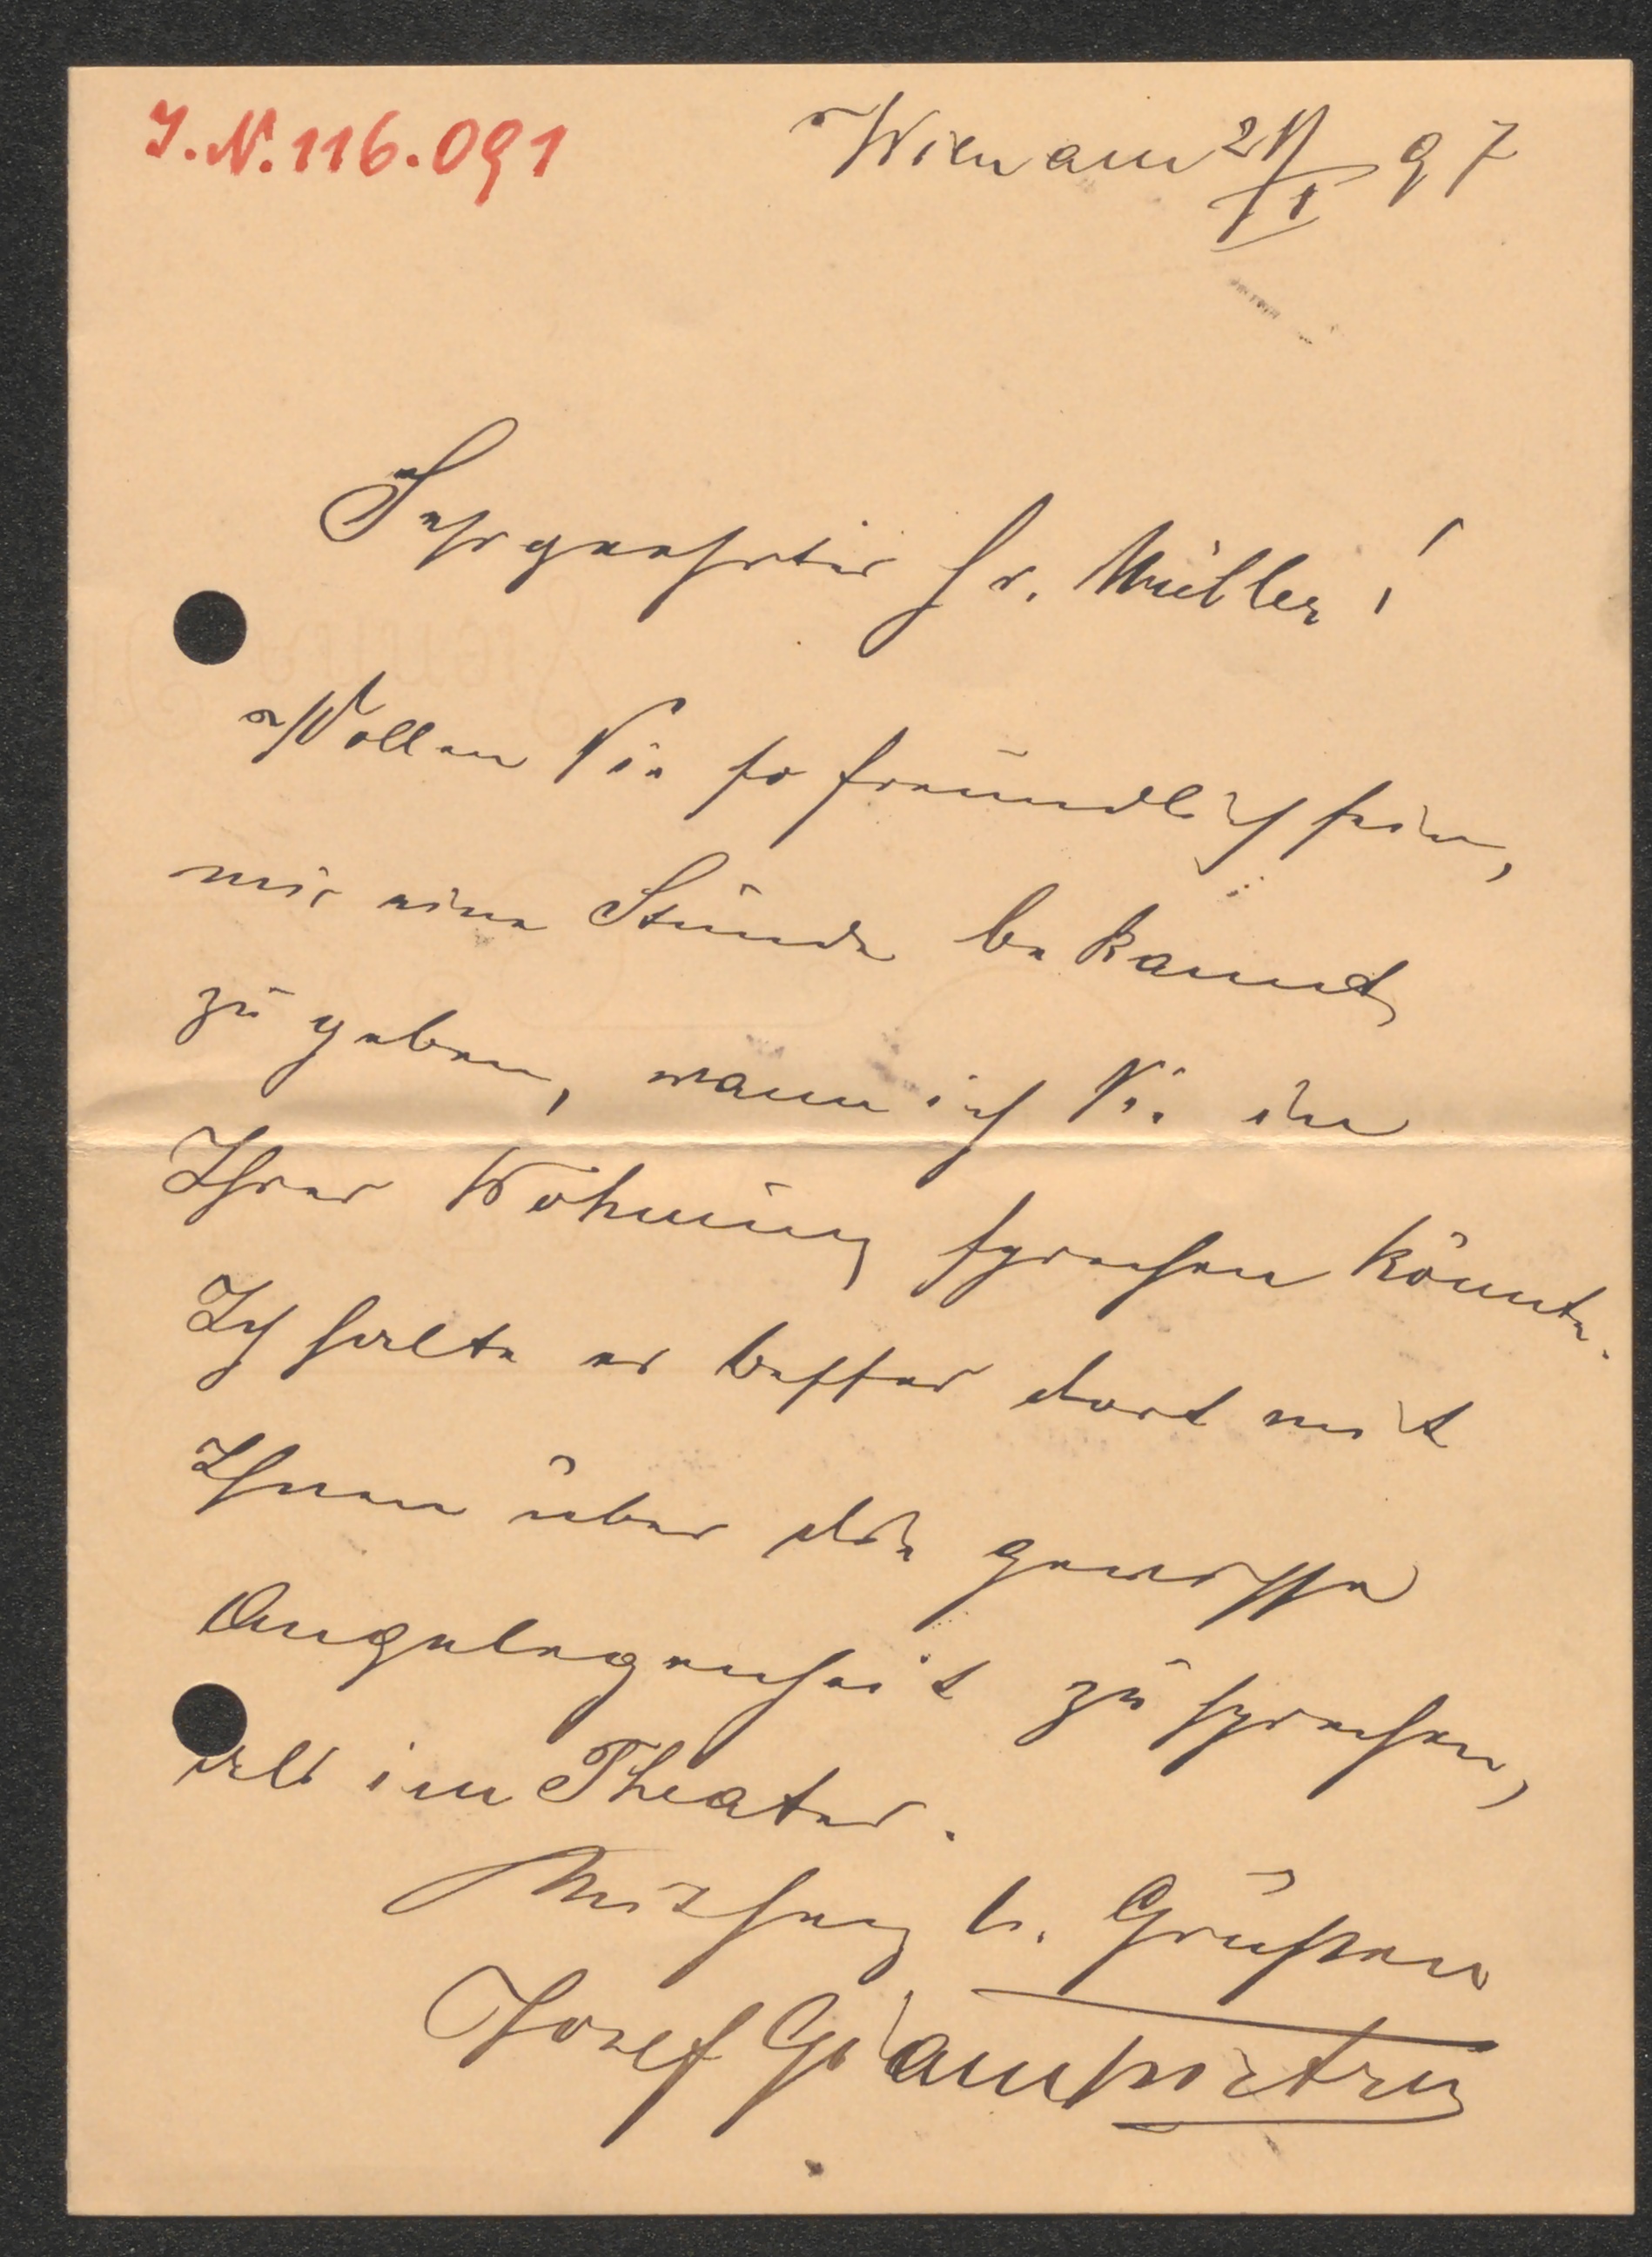 I.N. 116.091
Wien am 21/I 97
Sehr geehrter Hr. Müller!
Wollen Sie so freundlich sein,
mir eine Stunde bekannt
zu geben, wann ich Sie in
Ihrer Wohnung sprechen könnte.
Ich halte es besser dort mit
Ihnen über die gewisse
Angelegenheit zu sprechen,
als im Theater.
Mit herz b. Grüßen
Josef Giampietro